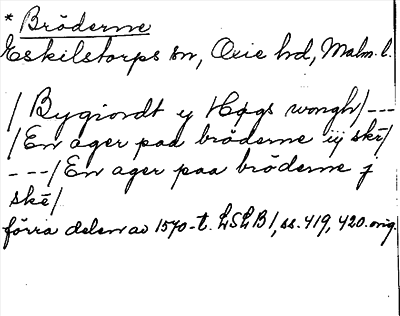 * Bröderne
Eskilstorps sn, Oxie hd, Malm. l.
/ Bygiordt y Høgs wongh/---
/En ager paa bröderne iij skē/
---/En ager paa bröderne j
skē/
förra delen av 1570-t. LSLB 1, ss. 419, 420. orig.